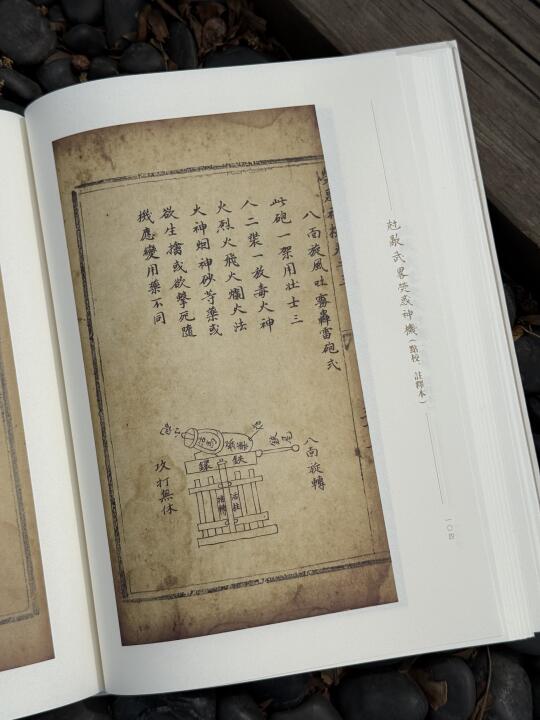 尅敵武畧熒惑神機（點校 註釋本）
一〇四
八面旋風吐霧轟雷砲式
此砲一架用壯士三
人二裝一放毒火神
火烈火飛火爛火法
火神烟神砂等藥或
欲生擒或欲擊死隨
機應變用藥不同
八面旋轉
鐵
攻打無休